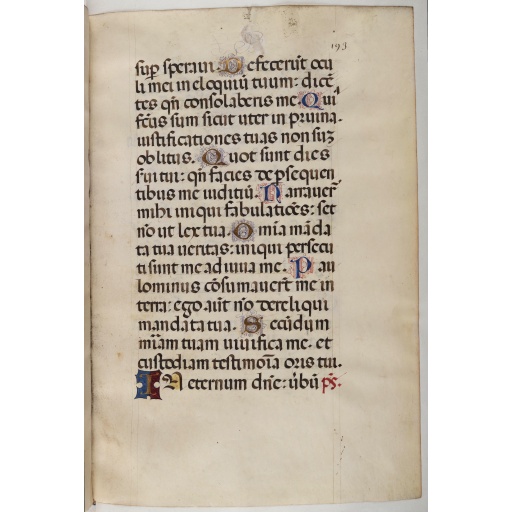 193
sup̱ speraui. Defecerūt ocu
li mei in eloquiū tuum: dicē
tes qn̄ consolaberis me. Qui
fc̄us sum sicut uter in pruina.
iustificationes tuas non suꝫ
oblitus. Quot sunt dies
serui tui: qn̄ facies de ꝑsequen
tibus me iuditiū. Narrauer̄
mihi iniqui fabulatiōes: set
nō ut lex tua. Omīa māda
ta tua ueritas: iniqui persecu
ti sunt me adiuua me. Pau
lominus cōsumauer̄t me in
terra: ego aūt nō dereliqui
mandata tua. Secūdum
miāam tuam uiuifica me. et
custodiam testimoīa oris tui.
IN eternum dn̄e: ūbū ps̄.